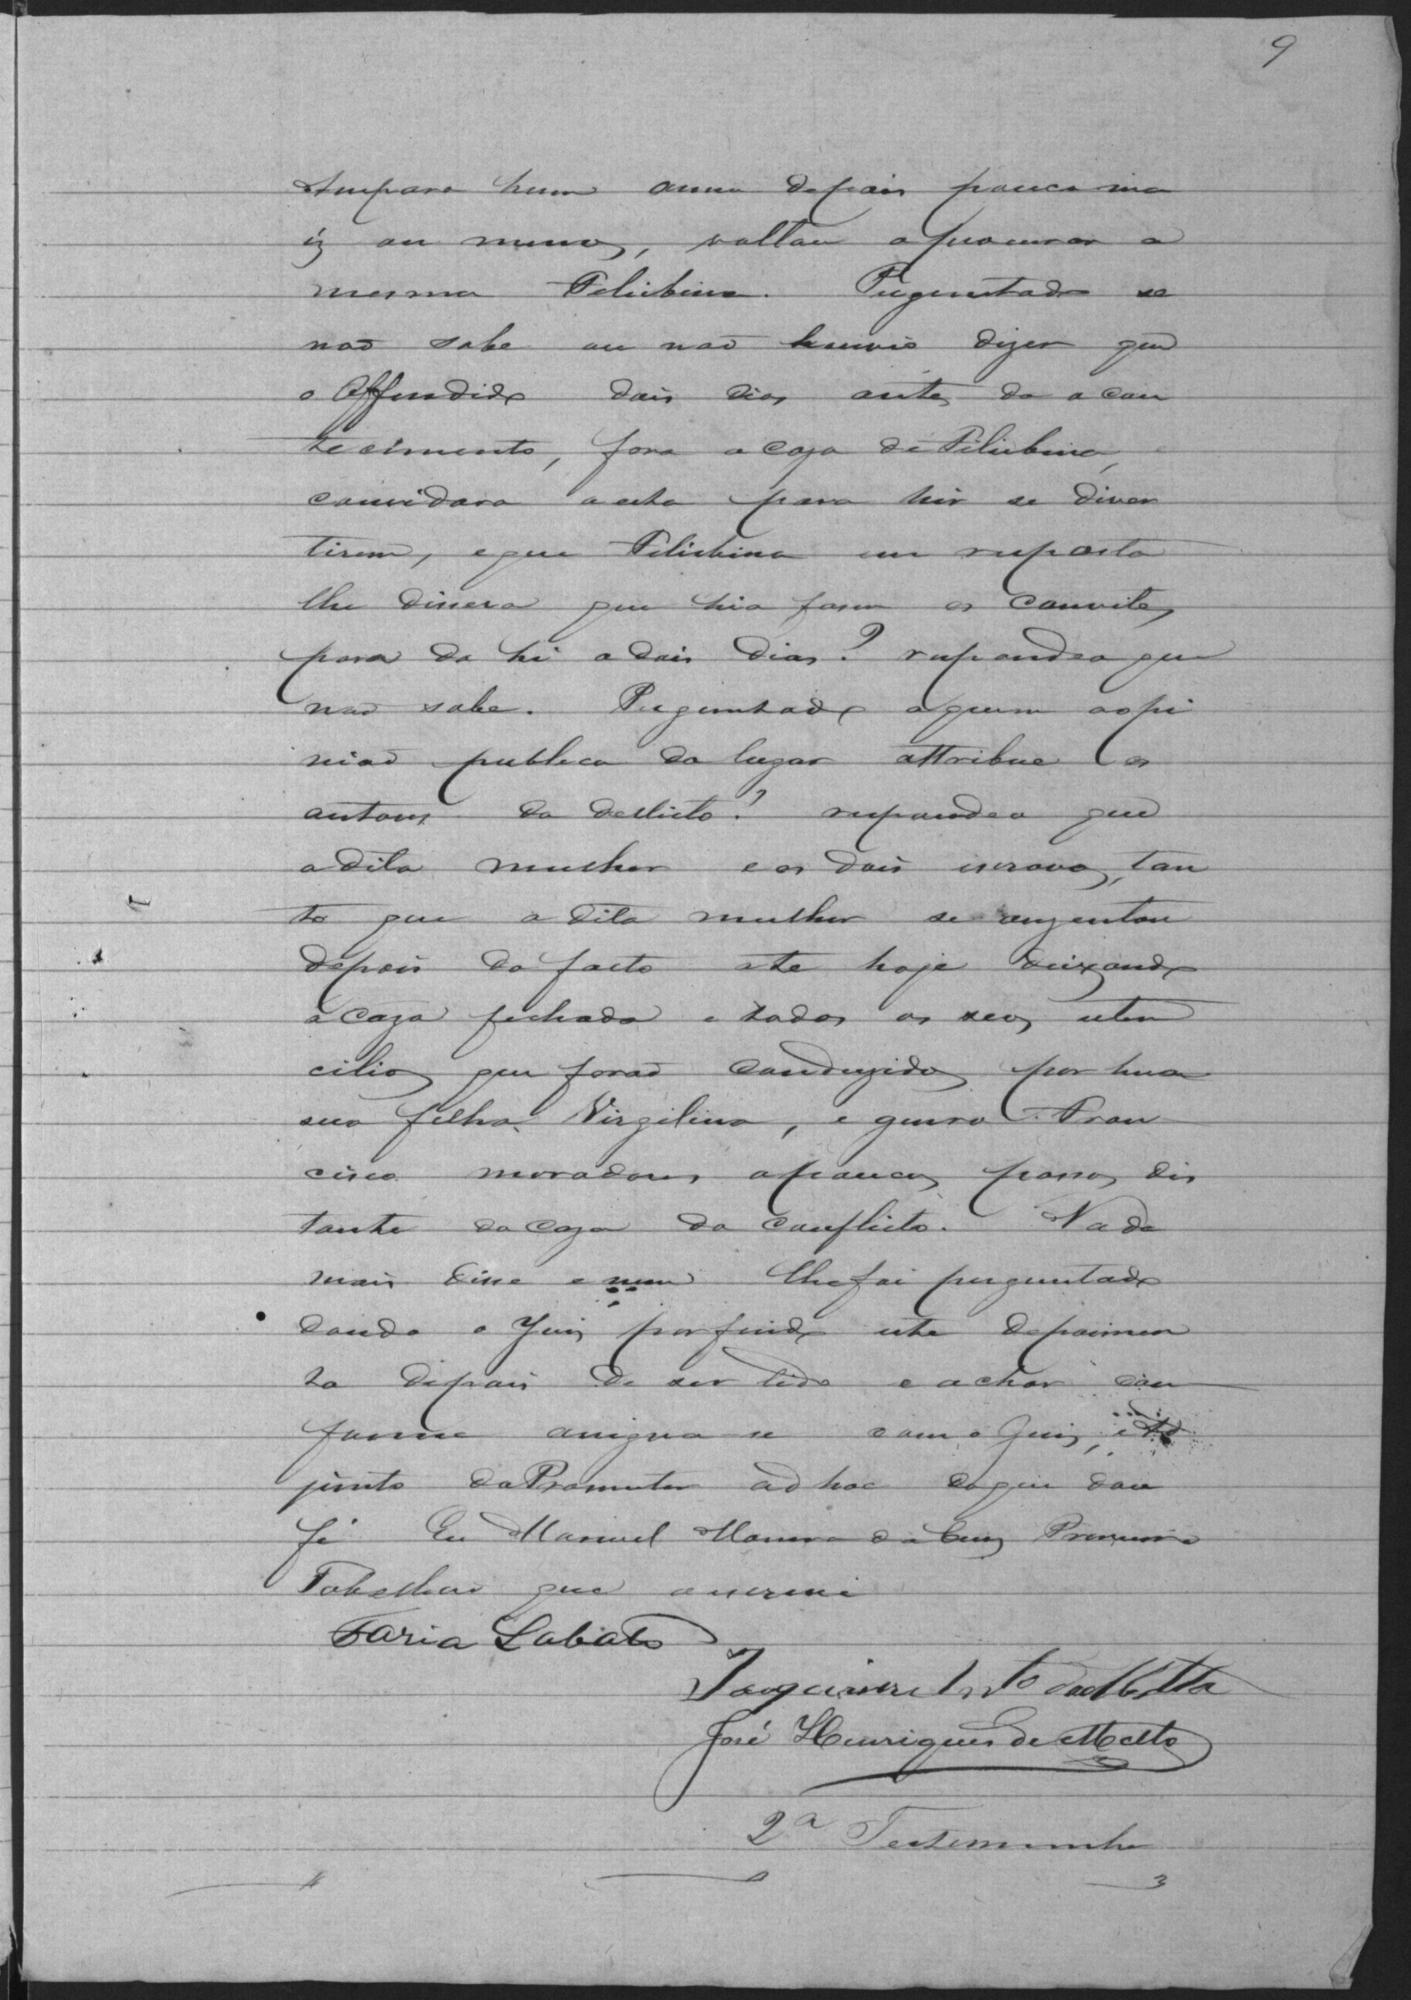 9
Ampara hum anno depois pouco ma
is ou menos, voltou aprocurar a
mesma Felisbina. Preguntado se
não sabe ou não houvio dizer que
o Offendido dois dias antes do acon
tecimento, fora a caza de Felisbina,
convidara a esta para hir se diver
tirem, e que Felisbina em resposta
lhe dissera que hia faser os convites
para da hi a dois dias? respondeo que
não sabe. Preguntado aquem aopi
nião publica do lugar attribue os
autores do delicto? respondeo que
adita mulher e os dois escravos, tan
to que a dita mulher se auzentou
depois do facto athe hoje deixando
a caza fechada e todos os seos uten
cilios que forão conduzidos por hua
sua filha Virgilina, e genro Fran
cisco moradores apoucos passos dis
tante da caza do conflicto. Nada
mais disse e nem lhe foi perguntado
dando o Juis por findo este depoimen
to depois de ser lido e achar con
forme assigna-se com o Juis, e
junto do Promutor ad hoc do que dou
fé Eu Manoel da Crus Primeiro
Tabellião que o escrevi
Faria Lobato
Joaquim Anto da Motta
José Henriques de Mello
2a Testemunha